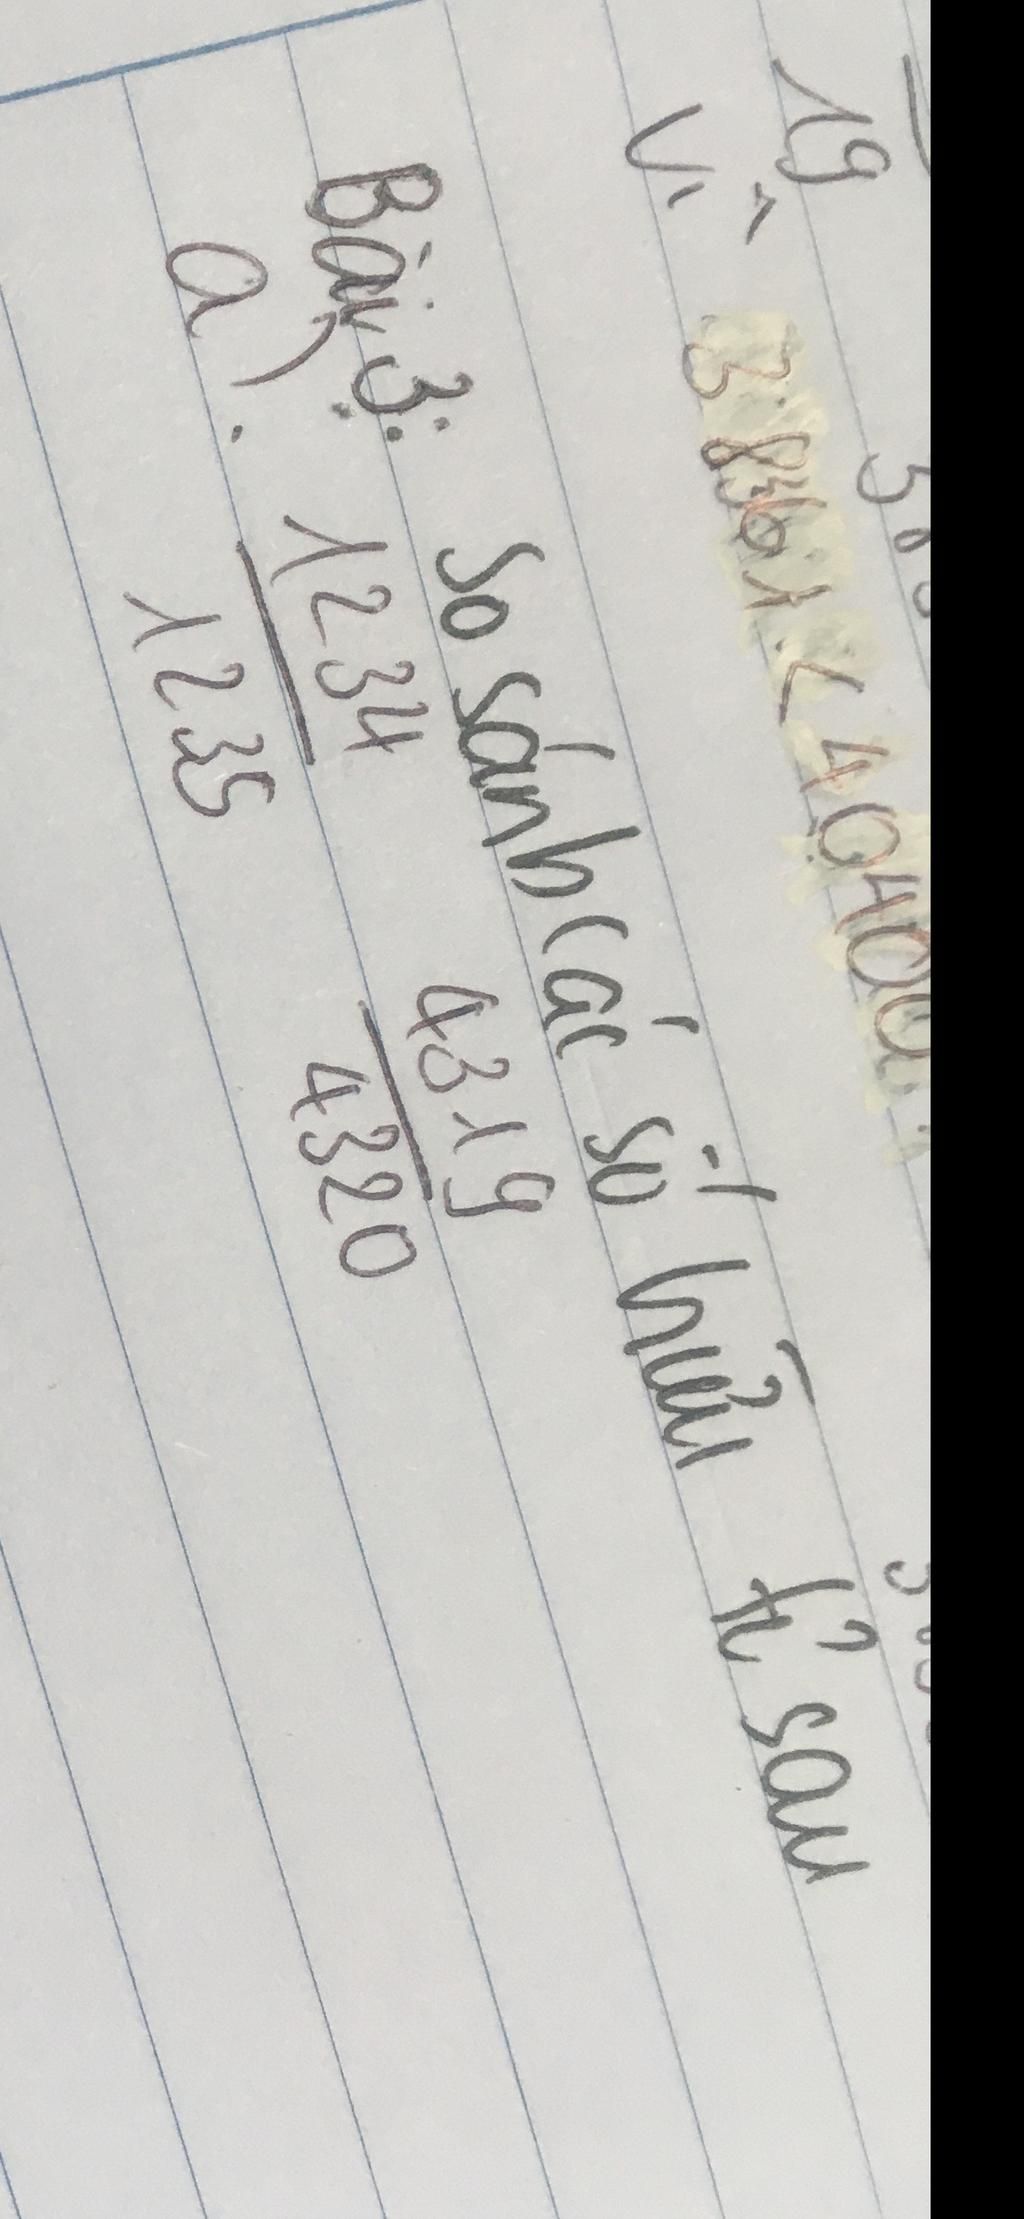 19
Vì 3.8361 < 40400
Bài 3: So sánh các số hữu tỉ sau
a) 1234 4319
1235 4320